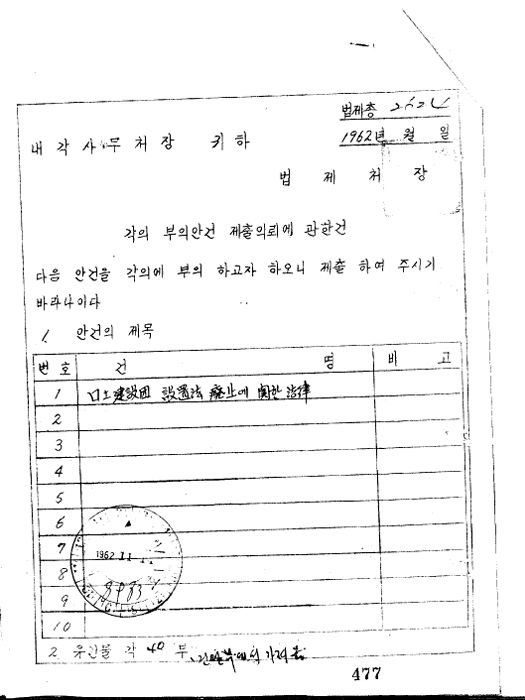 법제총 2626
1962년 월 일
내각사무처장 귀하
법 제 처 장
각의 부의안건 제출의뢰에 관한건
다음 안건을 각의에 부의 하고자 하오니 제출 하여 주시기
바라나이다
1. 안건의 제목
번호 건 명 비 고
1 口土建設団 設置法 廢止에 関한 法律
2
3
4
5
6
7
8
9
10
1962.11
2. 유인물 각 40 부
477